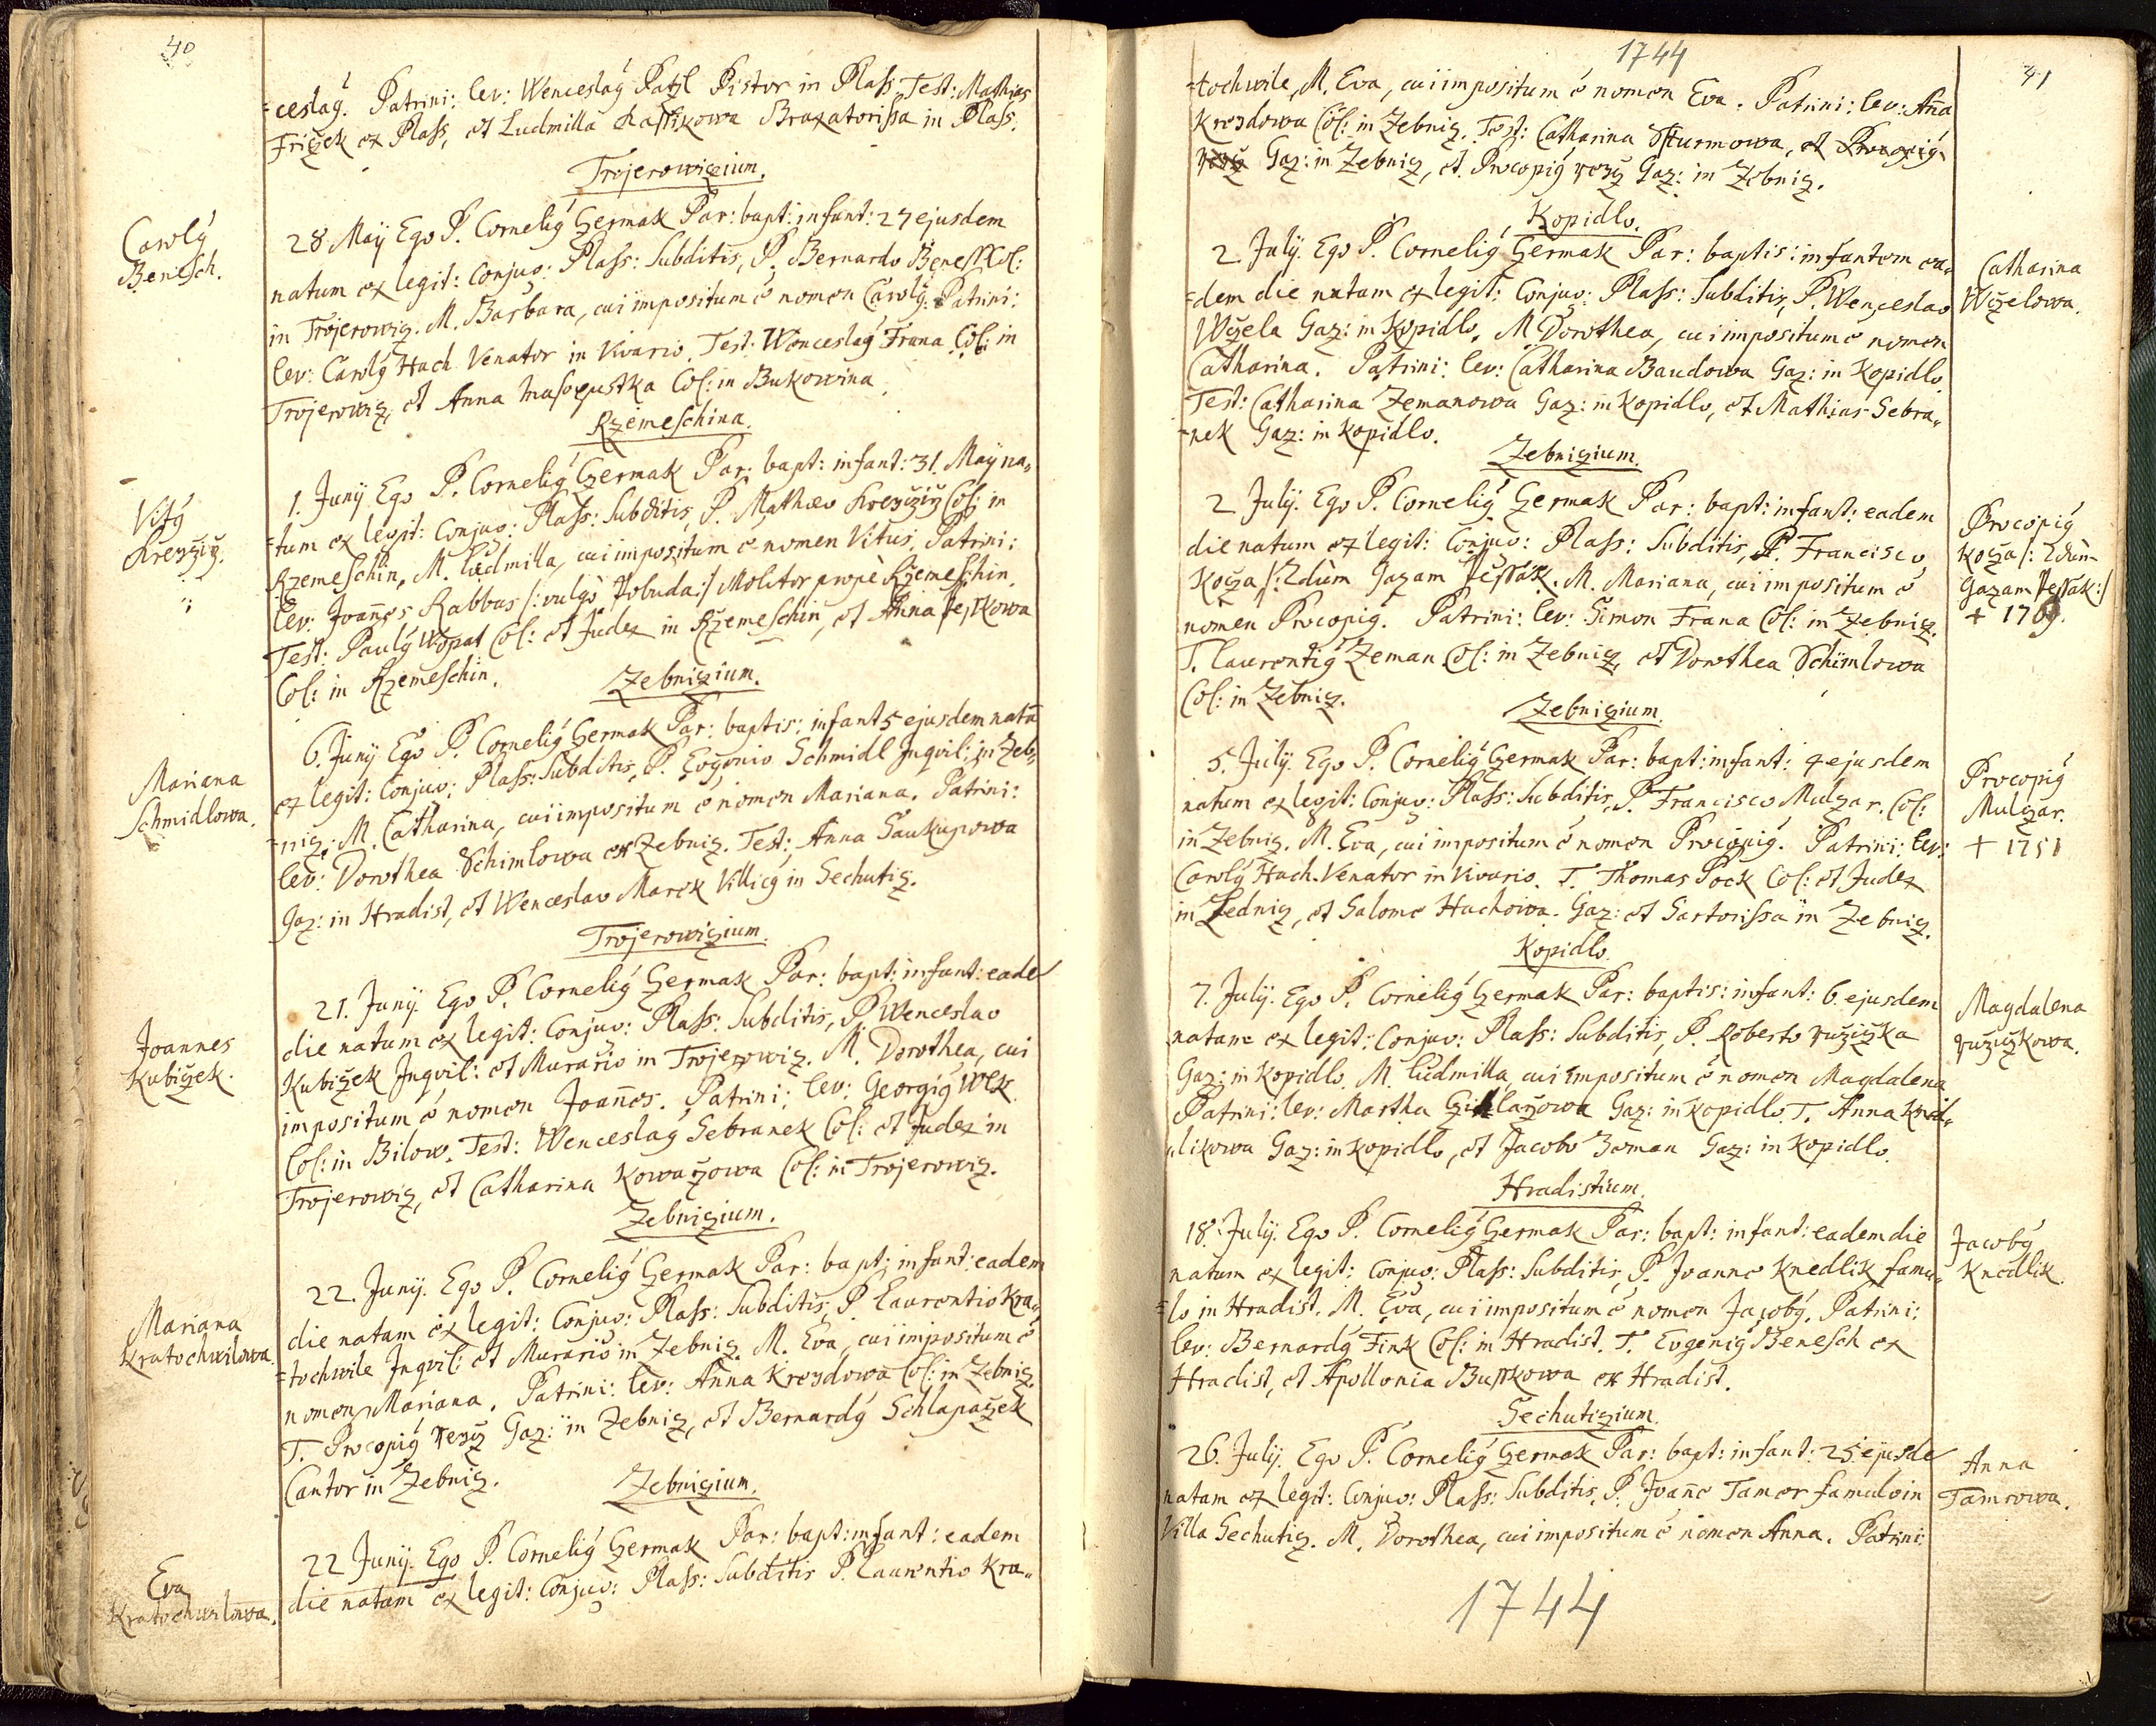 40
=ceslaý. Patrini: lev: Wenceslaý Patzl Pistor in Plass, Test: Mathias
Friczek ex Plass, et Ludmilla Rassikowa Braxatorissa in Plass.
Trojerowizium.
Carolý
Benesch.
28 Maÿ Ego P. Cornelý Czermak Par: bapt: infant: 27 ejusdem
natum ex legit: Conjuo: Plass: Subditis, P. Bernardo Benesch Col:
in Trojerowiz. M. Barbara, cui impositum ē nomen Carolý. Patrini:
lev: Carolý Hach Venator in Vivario. Test. Wenceslaý Frana Col: in
Trojerowiz, et Anna Masopustka Col: in Bukowina.
Rzemeschina.
Vitý
Krežziž.
1. Junÿ Ego P. Cornelý Czermak Par: bapt: infant: 31. Maÿ na„
=tum ex legit: Conjuo: Plass: Subditis, P. Mathæo Krežziž Col: in
Rzemeschin, M. Ludmilla, cui impositum ē nomen Vitus, Patrini:
lev: Joañes Rabbas /: vulgò Pobuda:/ Molitor propè Rzemeschin.
Test: Paulý Wopat Col: et Judex in Rzemeschin, et Anna
Col: in Rzemeschin.
Zebnizium.
Mariana
Schmidlowa.
6. Junÿ Ego P. Cornelý Czermak Par: baptis: infant 5 ejusdem natā
ex legit: Conjuo: Plass: Subditis, P. Eugenio Schmidl Inqvil: in Zeb„
=niz. M. Catharina, cui impositum ē nomen Mariana. Patrini:
lev: Dorothea Schimlowa ex Zebniz. Test: Anna Saukupowa
Gaz: in Hradist, et Wenceslao Marek Villicý in Sechutiz.
Trojerowizium.
Joannes
Kubižek.
21. Junÿ. Ego P. Cornelý Czermak Par: bapt: infant: eade
die natum ex legit: Conjuo: Plass: Subditis, P. Wenceslao
Kubižek Inqvil: et Murario in Trojerowiz. M. Dorothea, cui
impositum ē nomen Joañes. Patrini: lev: Georgiý Wlk
Col: in Bilow. Test: Wenceslaý Sebranek Col: et Judex in
Trojerowiz, et Catharina Kowaržowa Col: in Trojerowiz.
Zebnizium.
Mariana
Kratochwilowa.
22. Junÿ. Ego P. Cornelý Czermak Par: bapt: infant: eadem
die natam ex legit: Conjuo: Plass: Subditis, P. Laurentio Kra„
=tochwile Inqvil: et Murario in Zebniz. M. Eva, cui impositum ē
nomen Mariana. Patrini: lev: Anna Kreydowa Col: in Zebniz.
T. Procopiý Gaz: in Zebniz, et Bernardý Schlapažek
Cantor in Zebniz.
Zebnizium.
Eva
Kratochwilowa.
22 Junÿ. Ego P. Cornelý Czermak Par: bapt: infant: eadem
die natam ex legit: Conjuo: Plass: Subditis P. Laurentio Kra„
1744
41
=tochwile, M. Eva, cui impositum ē nomen Eva. Patrini: lev: Aña
Kreydowa Col: in Zebniz. Test: Catharina Sturmowa, et Procopiý
Gaz: in Zebniz, et Procopiý Gaz: in Zebniz.
Kopidlo.
2 Julÿ. Ego P. Cornelý Czermak Par: baptis: infantem ea„
=dem die natam ex legit: Conjuo: Plass: Subditis, P. Wenceslao
Wczela Gaz: in Kopidlo, M. Dorothea, cui impositum ē nomen
Catharina. Patrini: lev: Catharina Baudowa Gaz: in Kopidlo
Test: Catharina Zemanowa Gaz: in Kopidlo, et Mathias Sebra„
=nek Gaz: in Kopidlo.
Catharina
Wczelowa.
Zebnizium.
2 Julÿ. Ego P. Cornelý Czermak Par: bapt: infant: eadem
die natum ex legit: Conjuo: Plass: Subditis, P. Francisco
Kocza /: Zdùm Gazam Pessak. M. Mariana, cui impositum ē
nomen Procopiý. Patrini: lev: Simon Frana Col: in Zebniz.
T. Laurentiý Zeman Col: in Zebniz, et Dorothea Schimlowa
Col: in Zebniz.
Procopiý
Kocza /: Zdùm
Gazam Pessak:/
+ 1769.
Zebnizium.
5. Julÿ. Ego P. Cornelý Czermak Par: bapt: infant: 4 ejusdem
natum ex legit: Conjuo: Plass: Subditis, P. Francisco Mulzar. Col:
in Zebniz. M. Eva, cui impositum ē nomen Procopiý. Patrini: lev:
Carolý Hach. Venator in Vivario. T. Thomas Pock Col: et Judex
in Ledniz, et Salome Hachowa. Gaz: et Sartorissa in Zebniz.
Procopiý
Mulzar.
+ 1751
Kopidlo.
7. Julÿ. Ego P. Cornelý Czermak Par: baptis: infant: 6. ejusdem
natam ex legit: Conjuo: Plass: Subditis, P. Roberto Ružižka
Gaz: in Kopidlo. M. Ludmilla, cui impositum ē nomen Magdalena
Patrini: lev: Martha Gaz: in Kopidlo. T. Anna Kned„
„likowa Gaz: in Kopidlo, et Jacobo Zeman Gaz: in Kopidlo.
Magdalena
Ružižkowa.
Hradistium.
18. Julÿ. Ego P. Cornelý Czermak Par: bapt: infant: eadem die
natum ex legit: Conjuo: Plass: Subditis, P. Joanne Knedlik famu„
=lo in Hradist. M. Eva, cui impositum ē nomen Jacobý. Patrini:
lev: Bernardý Fink Col: in Hradist. T. Eugeniý Benesch ex
Hradist, et Apollonia Buskowa ex Hradist.
Jacobý
Knedlik.
Sechutizium.
26. Julÿ. Ego P. Cornelý Czermak Par: bapt: infant: 25 ejusde
natam ex legit: Conjuo: Plass: Subditis, P. Joañe Tamer famulo in
Villa Sechutiz. M. Dorothea, cui impositum ē nomen Anna. Patrini:
Anna
Tamrowa.
1744